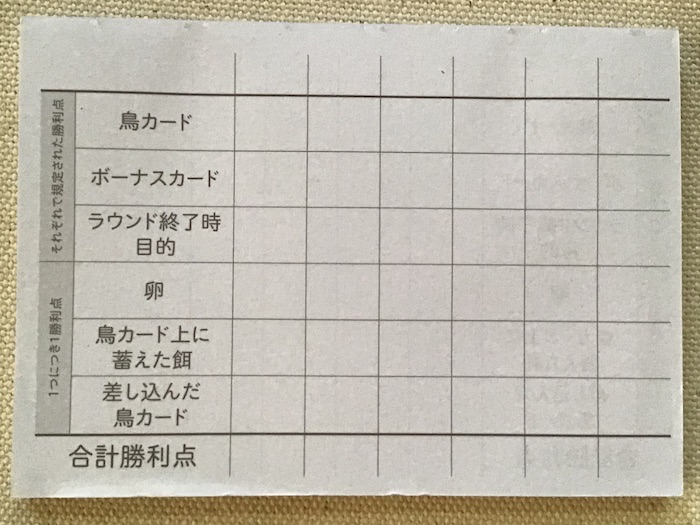 それぞれで規定された勝利点
鳥カード
ボーナスカード
ラウンド終了時
目的
1つにつき1勝利点
卵
鳥カード上に
蓄えた餌
差し込んだ
鳥カード
合計勝利点